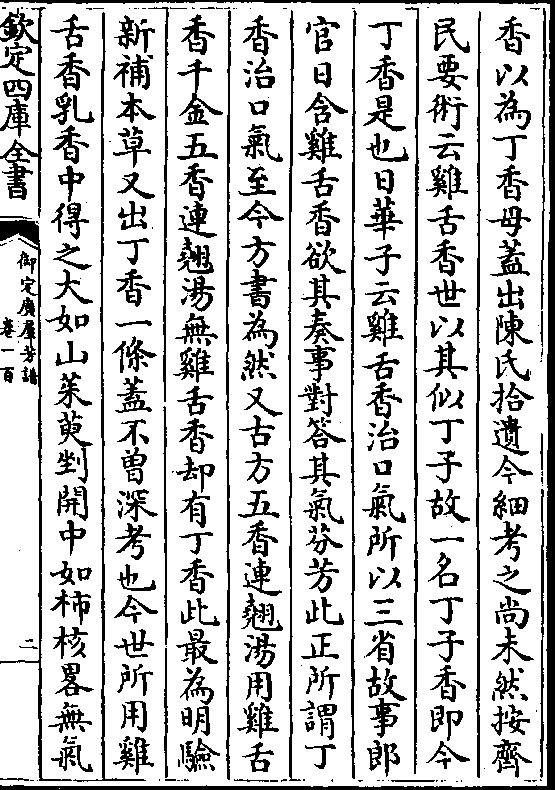 香以為丁香母蓋出陳氏拾遺今細考之尚未然按齊
民要術云雞舌香世以其似丁子故一名丁子香即今
丁香是也日華子云雞舌香治口氣所以三省故事郎
官日含雞舌香欲其奏事對答其氣芬芳此正所謂丁
香治口氣至今方書為然又古方五香連翹湯用雞舌
香千金五香連翹湯無雞舌香却有丁香此最為明驗
新補本草又出丁香一條蓋不曽深考也今世所用雞
舌香乳香中得之大如山茱萸剉開中如柿核畧無氣
欽定四庫全書
御定廣羣芳譜
卷一百
二